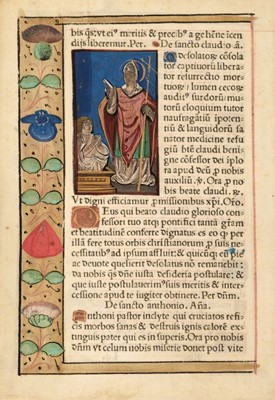 bis q̄s: vt eiꝰ meritis & precibꝰ a gehēne īcen
dijs liberemur. Per. De sancto claudio ā.
O desolatoꝝ cōsola
tor captiuorū libera
tor resurrectio mor-
tuoꝝ: lumen cecoꝝ:
auditꝰ surdorū mu-
torū eloquium tutor
naufragātiū ipoten-
tiū & languidorū sa
nator medicine refu
giū btē claudi beni-
gne cōfessor dei īplo
ra apud deū ꝓ nobis
auxiliū. Ora ꝓ no
bis beate claudi.
Vt digni efficiamur ꝓmissionibus xp̄i. Oro.
Deus qui beato claudio glorioso con-
fessori tuo atqꝫ pontifici tantā gratiam
et beatitudinē conferre dignatus es vt qꝫ per
illā fere totus orbis christianorum ꝓ suis ne-
cessitatibꝰ ad ipsum affluit: & quicūqꝫ eū
ac deuote quesierit desolatus nō remanebit:
da nobis q̄s dn̄e iusta desideria postulare: &
que iuste postulauerimꝰ suis meritis & inter-
cessione apud te iugiter obtinere. Per dn̄m.
De sancto anthonio. Ana.
Anthoni pastor inclyte qui cruciatos refi-
cis morbos sanas & destruis ignis calorē ex-
tinguis pater qui es in superis. Ora pro nobis
dn̄m vt celum nobis miserie donet post vite